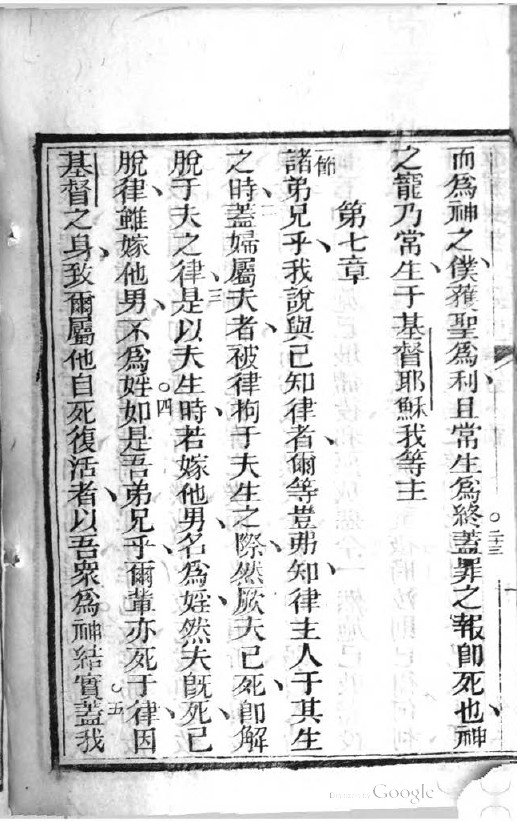 而爲神之僕、獲聖爲利、且常生爲終、○二十三蓋罪之報卽死也、神
之寵乃常生于基督耶穌我等主
第七章
一節諸弟兄乎、我說與已知律者、爾等豈弗知律主人于其生
之時、二蓋婦屬夫者、被律拘于夫生之際、然厥夫已死、卽解
脫于夫之律、三是以夫生時、若嫁他男、名爲婬、然夫旣死、已
脫律、雖嫁他男、不爲婬、○四如是吾弟兄乎、爾輩亦死于律、因
基督之身、致爾屬他自死復活者、以吾衆爲神結實、○五蓋我
Digitized by Google